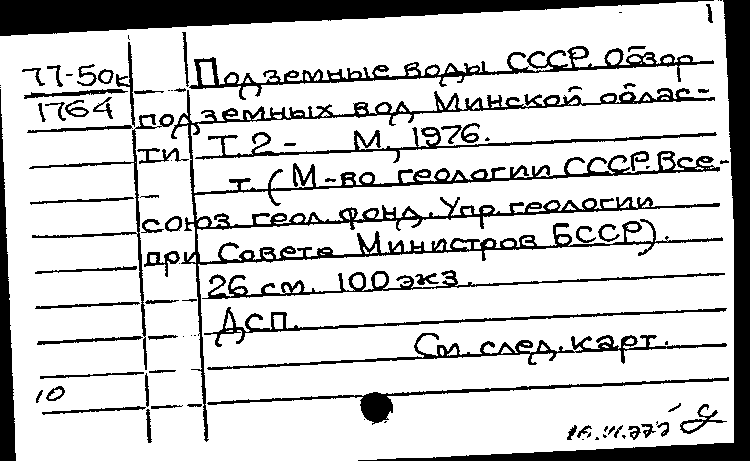 1
77-50к Подземные воды СССР. Обзор
1764 подземных вод Минской облас-
ти Т. 2 - М, 1976.
т. (М-во геологии СССР. Все-
союз. геол. фонд. Упр. геологии
при Совете Министров БССР).
26 см. 100 экз.
ДСП.
См. след. карт.
10